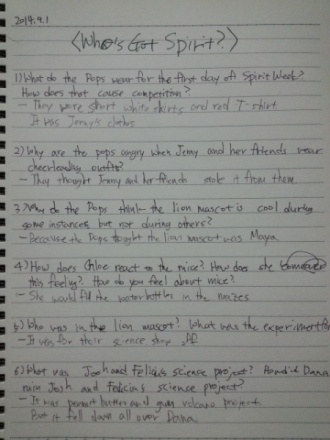 2014.9.1
<Who's Got Spirit?>
1) What do the Pops wear for the first day of Spirit Week?
How does that cause competition?
- They wore short white skirts and red T-shirt
It was Jenny's clothes
2) Why are the pops angry when Jenny and her friends wear
cheerleading outfits?
- They thought Jenny and her friends stole it from them.
3) Why do the Pops think the lion mascot is cool during
some instances but not during others?
- Because the Pops thought the lion mascot was Maya
4) How does Chloe react to the mice? How does she
this feeling? How do you feel about mice?
- She would fill the water bottles in the mazes
5) Who was in the lion mascot? What was the experiment for
- It was for their science show off
6) What was Josh and Felicia's science project? How did Dana
ruin Josh and Felicia's science project?
- It was peanut butter and volcano project.
But it fell down all over Dana.